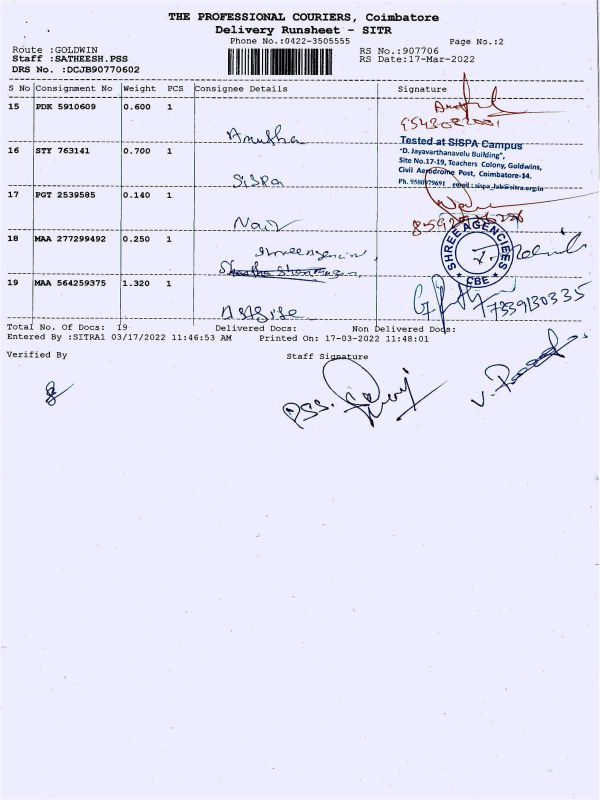 THE PROFESSIONAL COURIERS, Coimbatore
Delivery Runsheet - SITR
Phone No.:0422-3505555
Page No.:2
Route :GOLDWIN
RS No.:907706
Staff :SATHEESH.PSS
RS Date:17-Mar-2022
DRS No. :DCJB90770602
S No Consignment No Weight PCS Consignee Details Signature
15 PDK 5910609 0.600 1
Anusha
16 STY 763141 0.700 1
SISPA
Tested at SISPA Campus
"D. Jayavarthanavelu Building",
Site No.17-19, Teachers Colony, Goldwins,
Civil Aerodrome Post, Coimbatore-14.
Ph. 9500979691 email : sispa_lab@sitra.org.in
17 PGT 2539585 0.140 1
18 MAA 277299492 0.250 1
Shree agencies
SHREE AGENCIEES
CBE
19 MAA 564259375 1.320 1
7339130335
Total No. Of Docs: 19 Delivered Docs: Non Delivered Docs:
Entered By :SITRA1 03/17/2022 11:46:53 AM Printed On: 17-03-2022 11:48:01
Verified By Staff Signature
PSS.